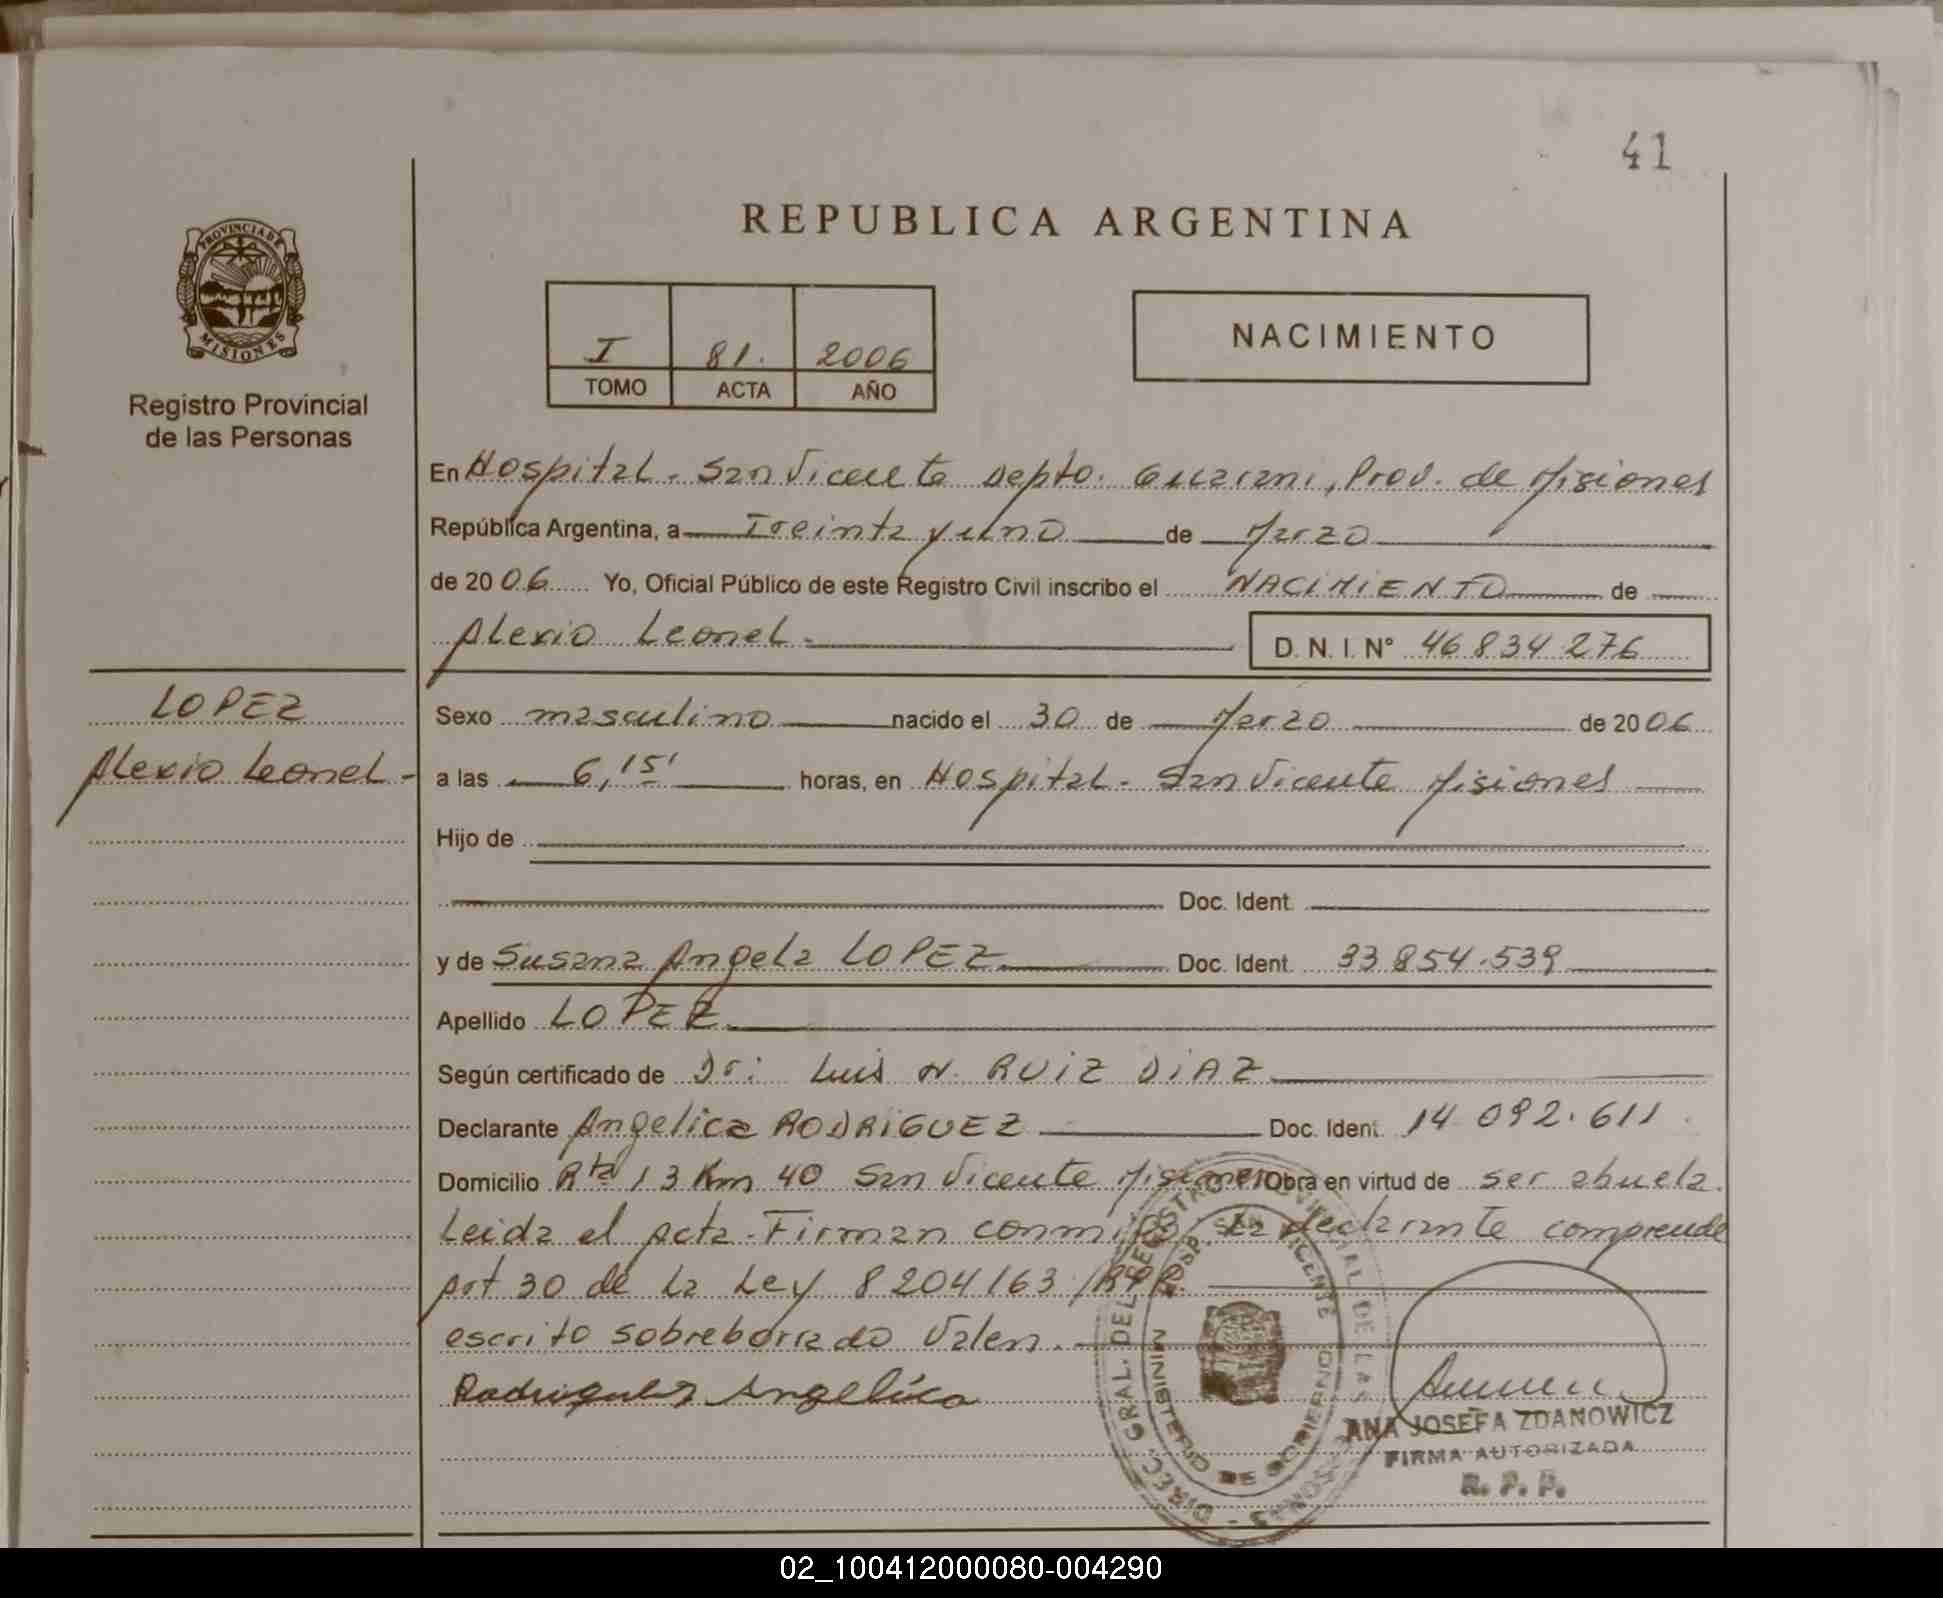 41
REPUBLICA ARGENTINA
PROVINCIA DE
MISIONES
Registro Provincial
de las Personas
I 81. 2006
TOMO ACTA AÑO
NACIMIENTO
En Hospital - San Vicente Depto. Guarani, Prov. de Misiones
República Argentina, a Treinta y uno de Marzo
de 2006 Yo, Oficial Público de este Registro Civil inscribo el NACIMIENTO de
Alexio Leonel - D. N. I. N° 46 834 276
LOPEZ
Alexio Leonel -
Sexo masculino nacido el 30 de Marzo de 2006
a las 6,15' horas, en Hospital - San Vicente Misiones
Hijo de
Doc. Ident.
y de Susana Angela LOPEZ Doc. Ident. 33 854.539
Apellido LOPEZ
Según certificado de Dr: Luis N. RUIZ DIAZ
Declarante Angelica RODRIGUEZ Doc. Ident. 14 092.611
Domicilio Rta 13 Km 40 San Vicente Misiones Obra en virtud de ser abuela.
Leida el acta - Firman conmigo la declarante comprende
art 30 de la Ley 8204/63
escrito sobreborrado Valen.
Rodriguez Angelica
DIREC. GRAL. DEL REGISTRO PROVINCIAL DE LAS PERSONAS
HOSP. SAN VICENTE
MINISTERIO DE GOBIERNO
ANA JOSEFA ZDANOWICZ
FIRMA AUTORIZADA
R. P. P.
02_100412000080-004290